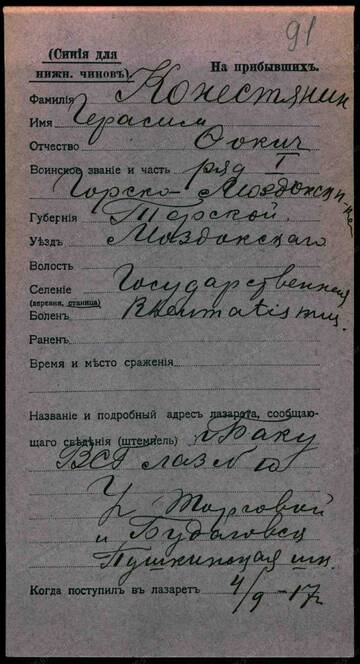 91
(Синія для нижн. чиновъ) На прибывшихъ.
Фамилія Конестянин
Имя Герасим
Отчество Фокич
Воинское званіе и часть ряд I
Горско-Моздокск
Губернія Терской
Уѣздъ Моздокскаго
Волость
Селеніе Государственная
(деревня, станица)
Боленъ Rheumatismus
Раненъ
Время и мѣсто сраженія
Название и подробный адресъ лазарета, сообщаю-
щаго свѣдѣнія (штемпель) г. Баку
ВСГ лаз № 10
Уг Торговой
и Будаговск
Пушкинская шк.
Когда поступилъ въ лазаретъ 4/9-17г